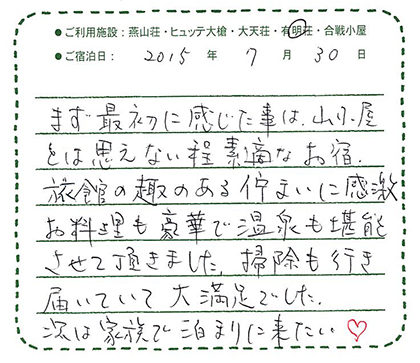 ●ご利用施設：燕山荘・ヒュッテ大槍・大天荘・有明荘・合戦小屋
●ご宿泊日： 2015 年 7 月 30 日
まず最初に感じた事は、山小屋
とは思えない程素適なお宿。
旅館の趣のある佇まいに感激
お料理も豪華で温泉も堪能
させて頂きました。掃除も行き
届いていて大満足でした。
次は家族で泊まりに来たい♡